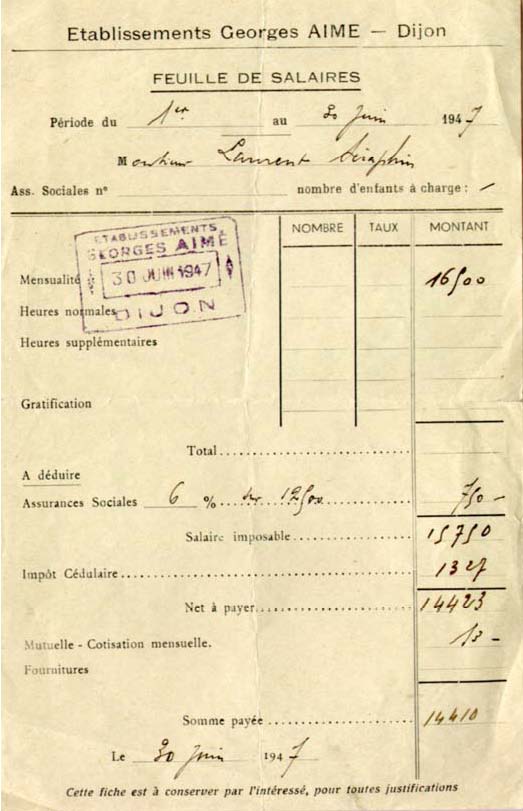 Etablissements Georges AIME — Dijon
FEUILLE DE SALAIRES
Période du 1er au 30 juin 1947
Monsieur Laurent Séraphin
Ass. Sociales n° nombre d'enfants à charge : /
NOMBRE TAUX MONTANT
ETABLISSEMENTS
GEORGES AIMÉ
30 JUIN 1947
DIJON
Mensualité 16500
Heures normales
Heures supplémentaires
Gratification
Total
A déduire
Assurances Sociales 6 % sur 12500 750 -
Salaire imposable 15750
Impôt Cédulaire 1327
Net à payer 14423
Mutuelle - Cotisation mensuelle. 13 -
Fournitures
Somme payée 14410
Le 30 juin 1947
Cette fiche est à conserver par l'intéressé, pour toutes justifications